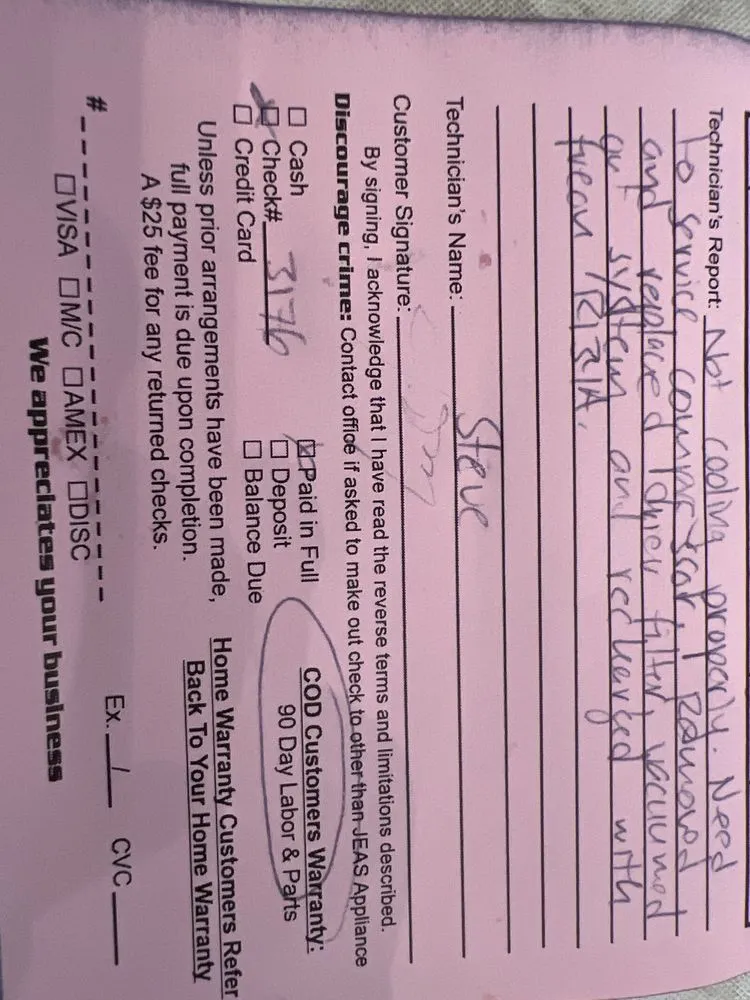 Technician's Report: Not cooling properly. Need
to service compressor, Removed
and replaced drier filter, vacuumed
out system and recharged with
freon R134A.
Technician's Name: Steve
Customer Signature:
By signing, I acknowledge that I have read the reverse terms and limitations described.
Discourage crime: Contact office if asked to make out check to other than JEAS Appliance
☐ Cash
☒ Check# 3176
☐ Credit Card
☒ Paid in Full
☐ Deposit
☐ Balance Due
COD Customers Warranty:
90 Day Labor & Parts
Unless prior arrangements have been made,
full payment is due upon completion.
A $25 fee for any returned checks.
Home Warranty Customers Refer
Back To Your Home Warranty
#
Ex. / CVC
☐VISA ☐M/C ☐AMEX ☐DISC
We appreciates your business